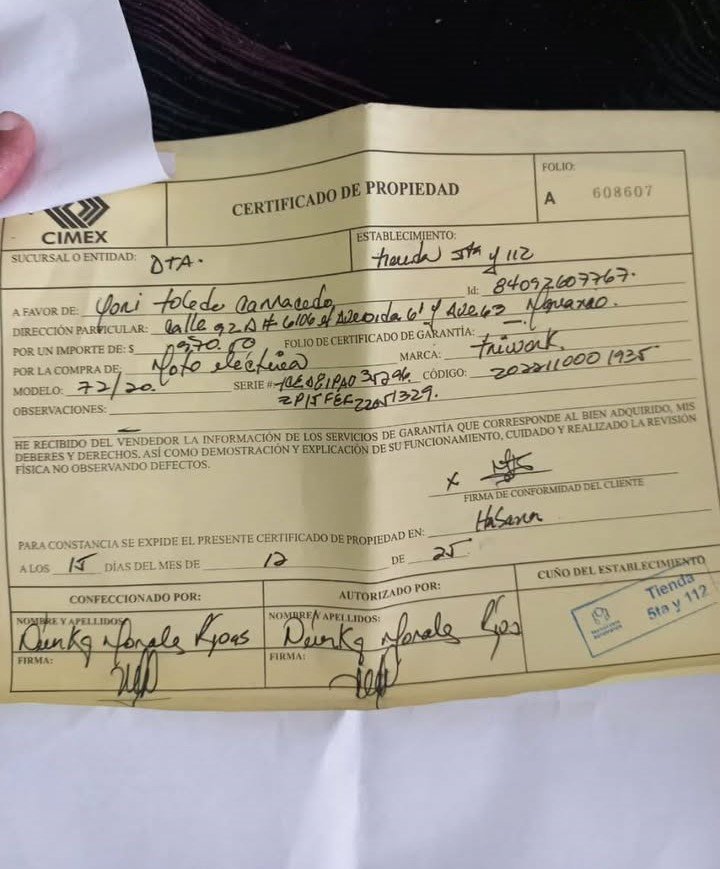 CIMEX
CERTIFICADO DE PROPIEDAD
FOLIO:
A 608607
SUCURSAL O ENTIDAD: DTA.
ESTABLECIMIENTO: tienda 5ta y 112
A FAVOR DE: Yoni Toledo Carracedo Id: 84092607767.
DIRECCIÓN PARTICULAR: Calle 92A # 6106 e/ Avenida 61 y Ave 63
POR UN IMPORTE DE: $ 970.50 FOLIO DE CERTIFICADO DE GARANTÍA:
POR LA COMPRA DE: Moto eléctrica MARCA:
MODELO: 72/20. SERIE # CÓDIGO: 2022110001935
OBSERVACIONES:
HE RECIBIDO DEL VENDEDOR LA INFORMACIÓN DE LOS SERVICIOS DE GARANTÍA QUE CORRESPONDE AL BIEN ADQUIRIDO, MIS
DEBERES Y DERECHOS. ASÍ COMO DEMOSTRACIÓN Y EXPLICACIÓN DE SU FUNCIONAMIENTO, CUIDADO Y REALIZADO LA REVISIÓN
FÍSICA NO OBSERVANDO DEFECTOS.
X
FIRMA DE CONFORMIDAD DEL CLIENTE
PARA CONSTANCIA SE EXPIDE EL PRESENTE CERTIFICADO DE PROPIEDAD EN: Habana
A LOS 15 DÍAS DEL MES DE 12 DE 25
CONFECCIONADO POR:
AUTORIZADO POR:
CUÑO DEL ESTABLECIMIENTO
NOMBRE Y APELLIDOS:
Morales
NOMBRE Y APELLIDOS:
Morales
Tienda
5ta y 112
FIRMA:
FIRMA: